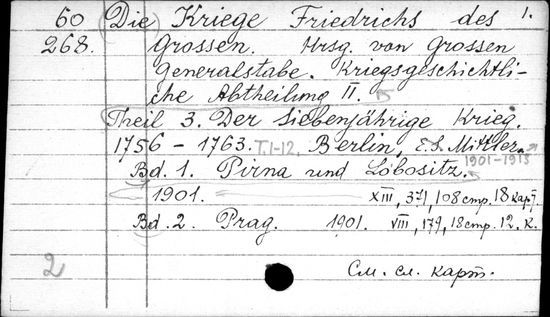 60 Die Kriege Friedrichs des 1.
268. Grossen. Hrsg. von Grossen
Generalstabe. Kriegsgeschichtli-
che Abtheilung II.
Theil 3. Der siebenjährige Krieg.
1756 - 1763. T.1-12. Berlin, E.S. Mittler.
1901-1913
Bd. 1. Pirna und Lobositz.
1901. XIII, 371, 108 стр. 18 карт.
Bd. 2. Prag. 1901. VIII, 179, 18 стр. 12. к.
2 См. сл. карт.